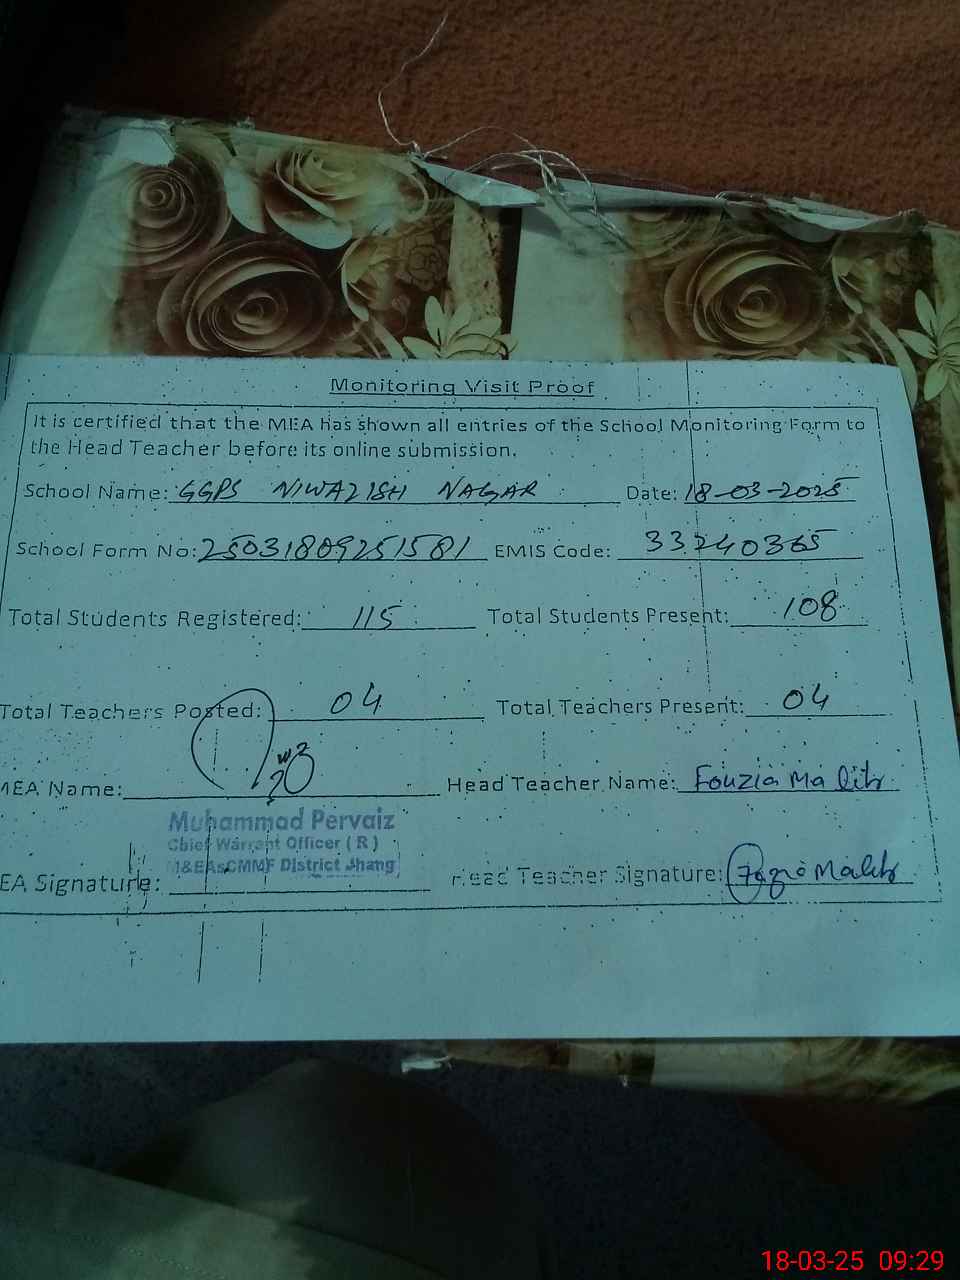 Monitoring Visit Proof
It is certified that the MEA has shown all entries of the School Monitoring Form to
the Head Teacher before its online submission.
School Name: GGPS NIWAZISH NAGAR Date: 18-03-2025
School Form No: 25031809251581 EMIS Code: 33240365
Total Students Registered: 115 Total Students Present: 108
Total Teachers Posted: 04 Total Teachers Present: 04
MEA Name: Head Teacher Name: Fouzia Malik
Muhammad Pervaiz
Chief Warrant Officer ( R )
M&EAsCMMF District Jhang
EA Signature: Head Teacher Signature: Malik
18-03-25 09:29